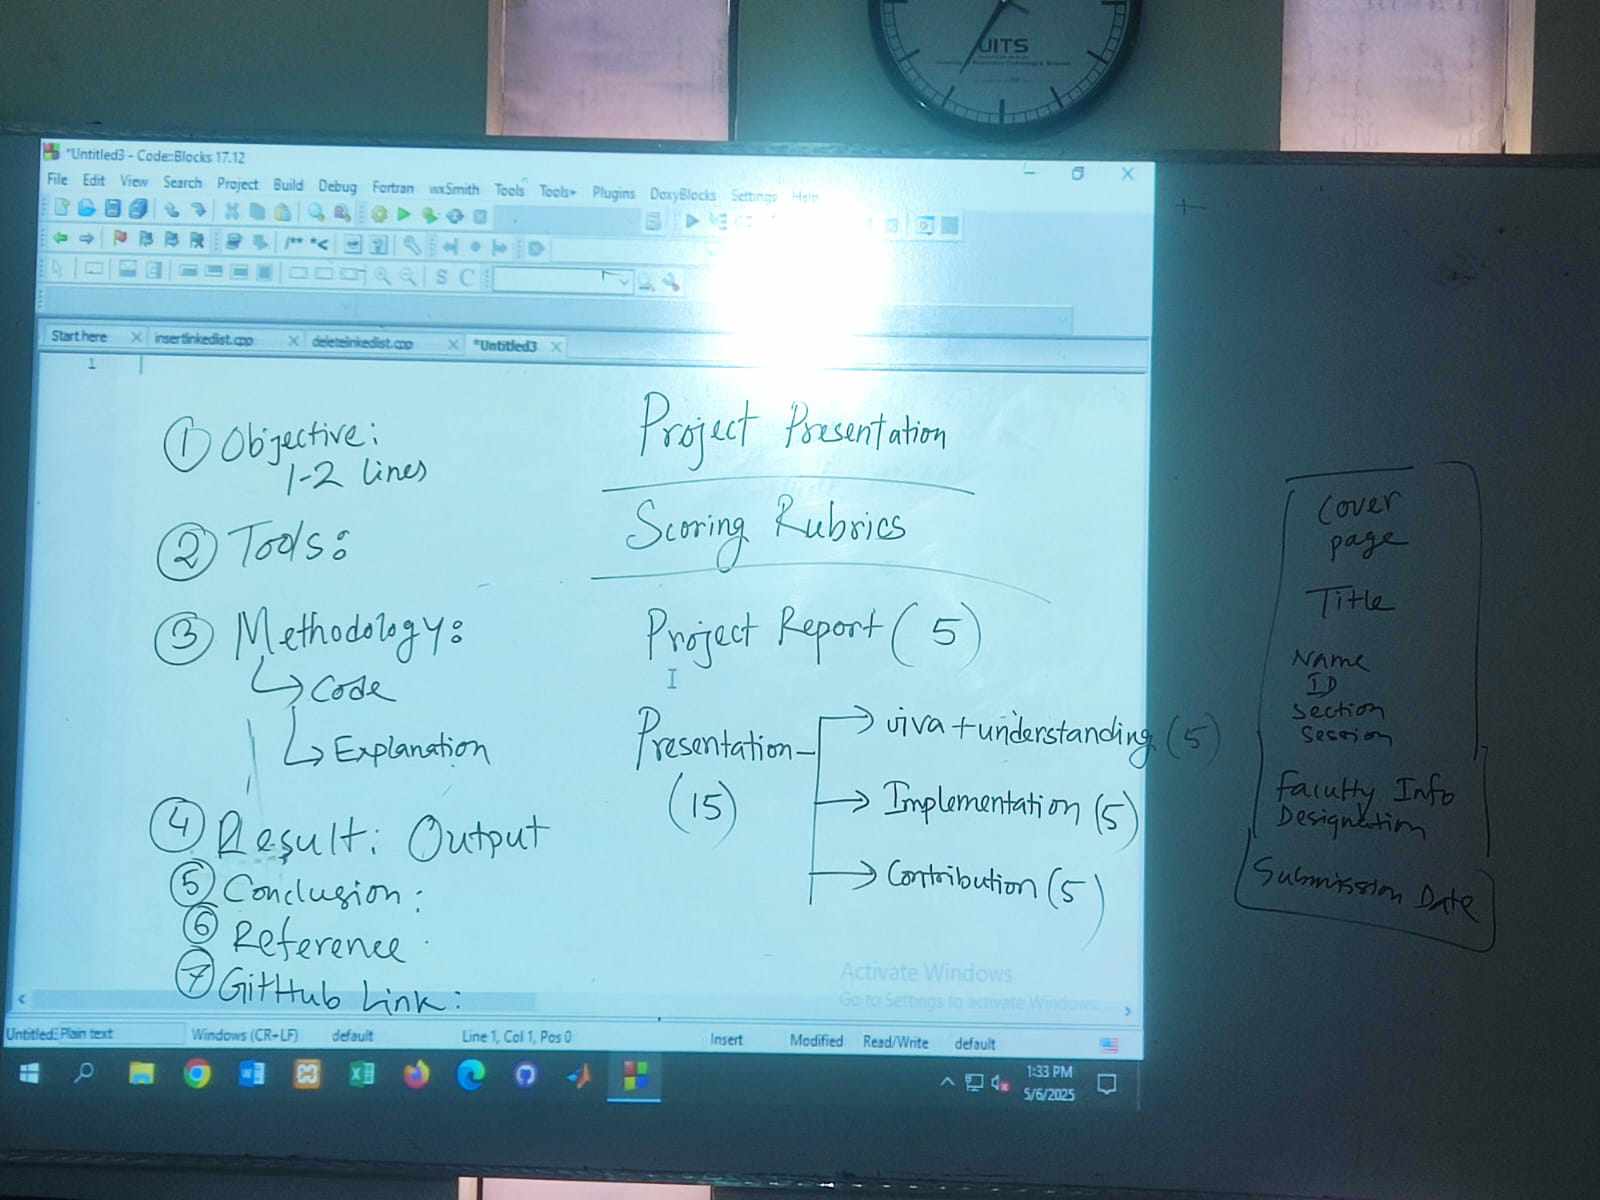 UITS
*Untitled3 - Code::Blocks 17.12
File Edit View Search Project Build Debug Fortran wxSmith Tools Tools+ Plugins DoxyBlocks Settings Help
/** *<
S C
Start here insertlinkedlist.cpp deletelinkedlist.cpp *Untitled3
1
① Objective:
1-2 lines
② Tools:
③ Methodology:
Code
Explanation
④ Result: Output
⑤ Conclusion:
⑥ Reference
⑦ GitHub Link:
Project Presentation
Scoring Rubrics
Project Report (5)
Presentation
(15)
viva + understanding (5)
Implementation (5)
Contribution (5)
Cover
page
Title
Name
ID
Section
Session
Faculty Info
Designation
Submission Date
Activate Windows
Go to Settings to activate Windows.
Untitled3 Plain text Windows (CR+LF) default Line 1, Col 1, Pos 0 Insert Modified Read/Write default
1:33 PM
5/6/2025